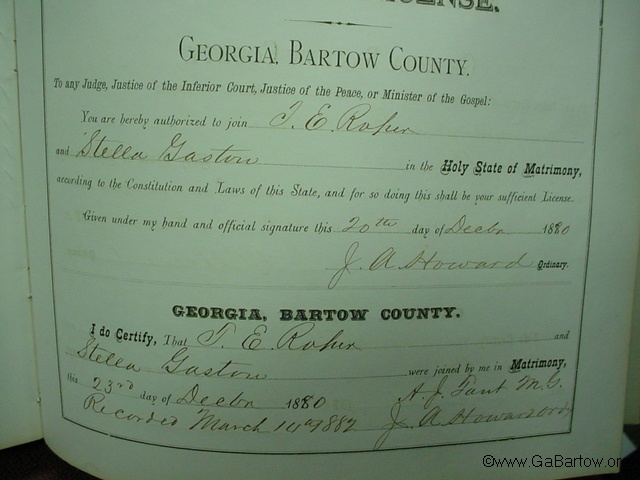 LICENSE.
GEORGIA, BARTOW COUNTY.
To any Judge, Justice of the Inferior Court, Justice of the Peace, or Minister of the Gospel:
You are hereby authorized to join T. E. Roper
and Stella Gaston in the Holy State of Matrimony,
according to the Constitution and Laws of this State, and for so doing this shall be your sufficient License.
Given under my hand and official signature this 20th day of Decbr 1880
J. A. Howard Ordinary.
GEORGIA, BARTOW COUNTY.
I do Certify, That T. E. Roper and
Stella Gaston were joined by me in Matrimony,
this 23rd day of Decbr 1880 A. J. M. G.
Recorded March 1882 J. A. Howard Ord
©www.GaBartow.or